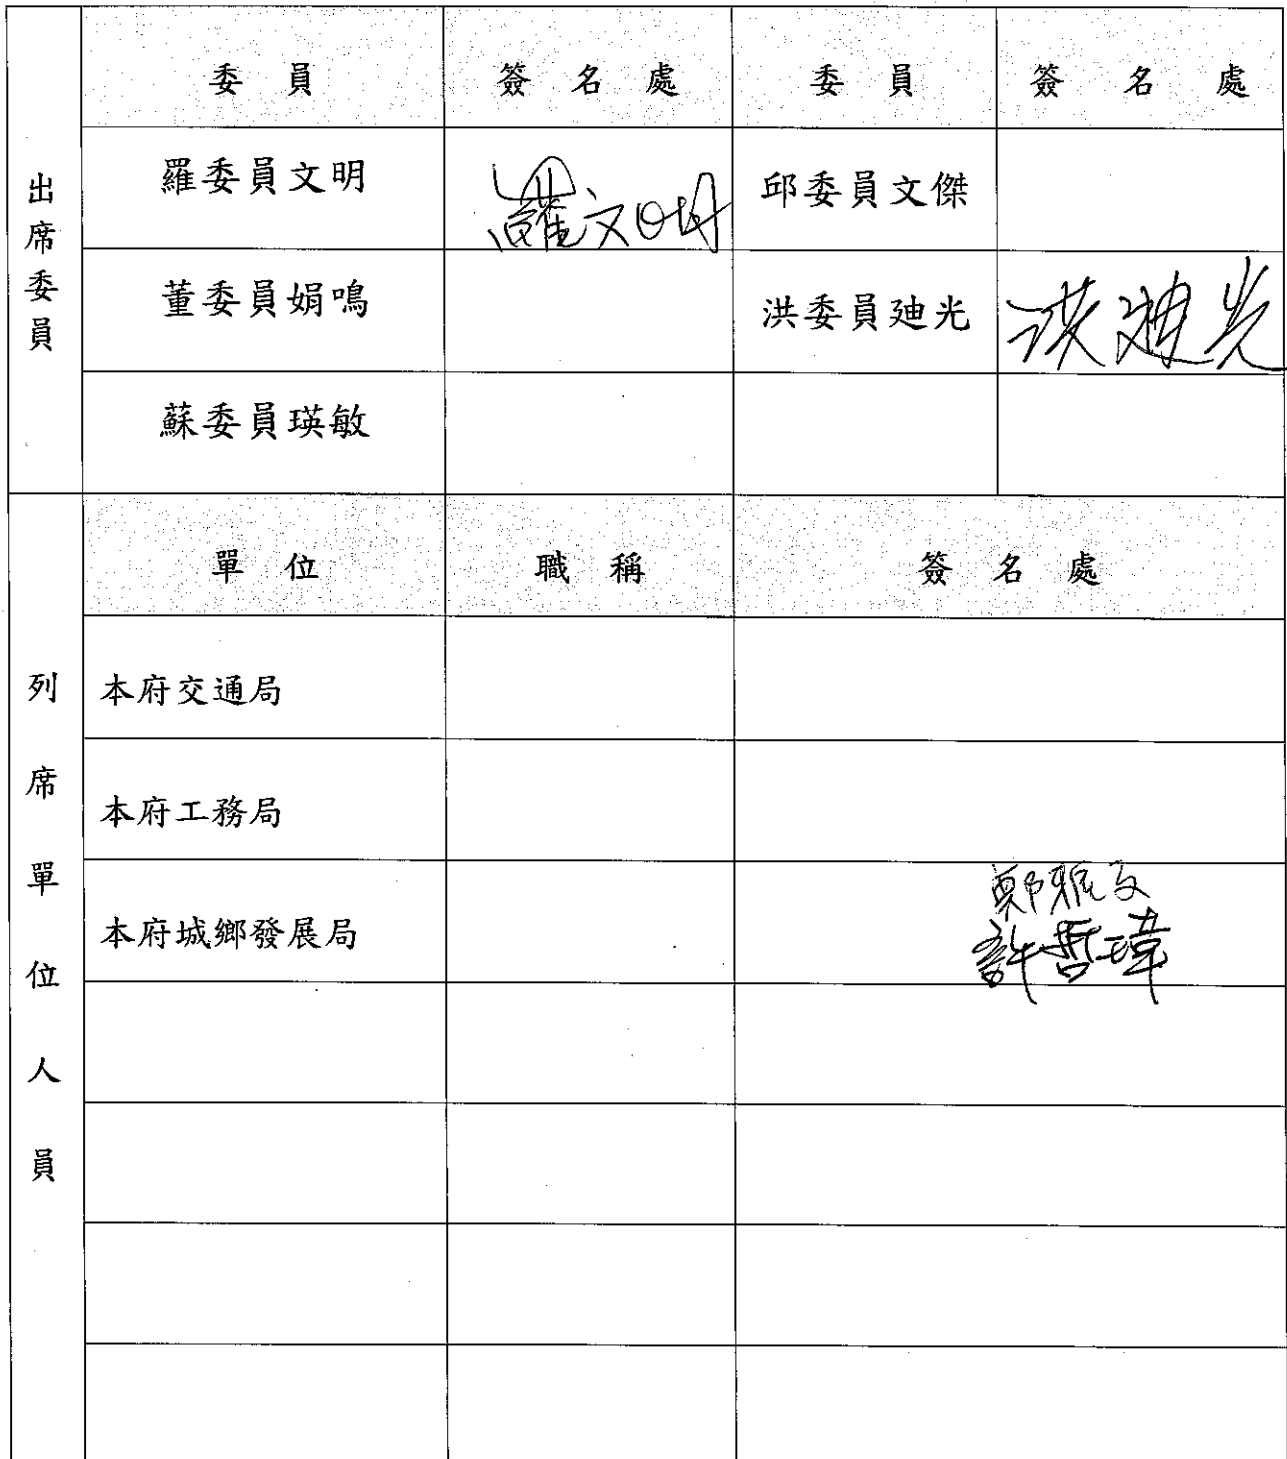 出席委員
委員 簽名處 委員 簽名處
羅委員文明 羅文明 邱委員文傑
董委員娟鳴 洪委員迪光 洪迪光
蘇委員瑛敏
列席單位人員
單位 職稱 簽名處
本府交通局
本府工務局
鄭雅文
本府城鄉發展局
許哲瑋